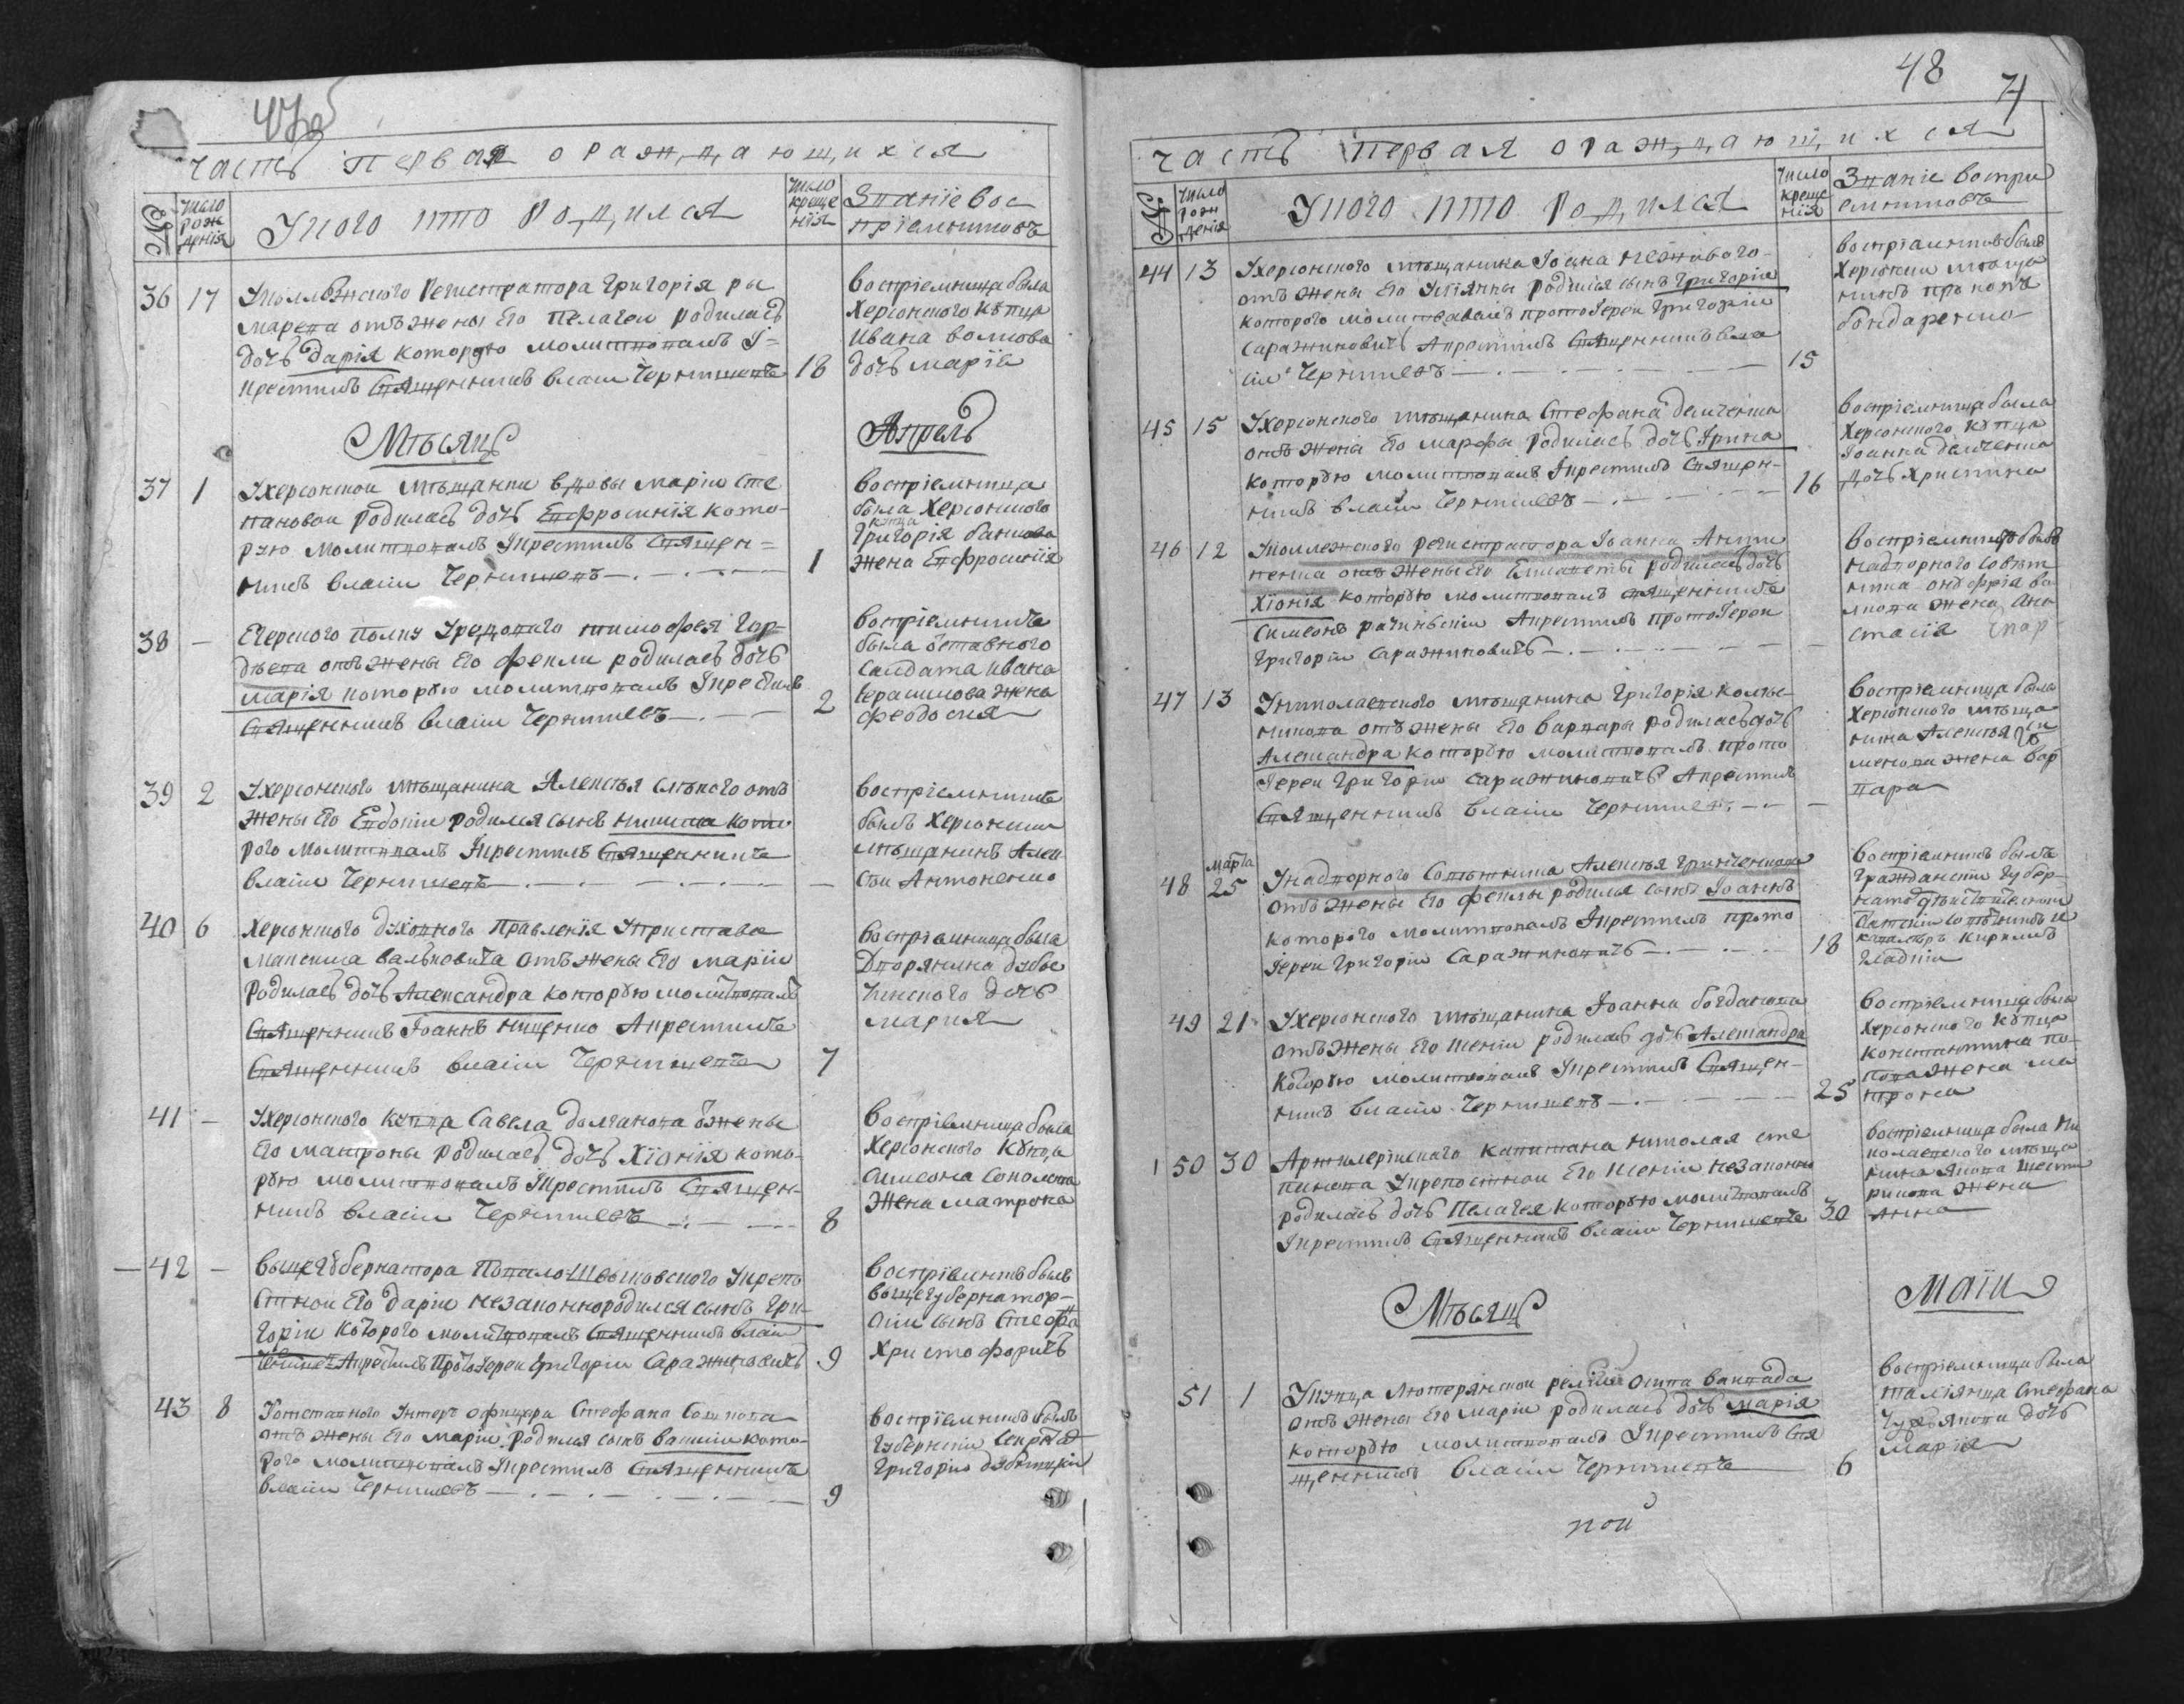 47об
часть первая о раждающихся
№
число рожденія
У кого кто родился
число крещенія
Званіе воспріемниковъ
36 17 У коллѣжского Регистратора Григорія Ры
марева отъ жены Его Пелагеи родилась
дочь Дарія которую молитвовалъ И=
крестилъ Священникъ власіи Чернышевъ 18
воспріемница была
Херсонского купца
Ивана волкова
дочь марія
Мѣсяцъ Апрель
37 1 У херсонской мѣщанки вдовы Маріи Сте
пановой родилась дочь Евфросинія кото-
рую молитвовалъ Икрестилъ Священ=
никъ власіи Чернышевъ 1
воспріемница
была Херсонского
купца
Григорія
жена Евфросинія
38 — Егерского полку Урядового тимофея Гор-
дѣева отъ жены Его Феклы родилась дочь
Марія которую молитвовалъ Икрестилъ
Священникъ власіи Чернышевъ 2
воспріемница
была отставного
Салдата Ивана
Герасимова жена
феодосия
39 2 У херсонского мѣщанина Алексѣя Слѣпого отъ
жены Его Евдокіи родился сынъ никита кото
рого молитвовалъ Икрестилъ Священникъ
власіи Чернышевъ —
воспріемникъ
былъ Херсонскіи
мѣщанинъ Алек
сѣи Антоненко
40 6 Херсонского духовного Правленія У пристава
Максима вальковича отъ жены Его Маріи
родилась дочь Александра которую молитвовалъ
Священникъ Іоаннъ нищенко Акрестилъ
Священникъ власіи Чернышевъ 7
воспріемница была
Дворянина
дочь
мария
41 — У херсонского купца Савела долганова отжены
Его матроны родилась дочь Хіонія кото-
рую молитвовалъ Икрестилъ Священ-
никъ власіи Чернышевъ 8
воспріемница была
Херсонского купца
Симеона Соколова
жена матрона
42 — вицегубернатора У крепо
стной Его Даріи незаконнородился сынъ Гри-
горіи которого молитвовалъ Священникъ власіи
Чернышевъ Акрестилъ Протоіереи Григоріи Саражиновичъ 9
воспріемникъ былъ
вицегубернатор-
скіи сынъ Стефанъ
Христофоричъ
43 8 У отставного Унтеръ офицера Стефана
отъ жены Его Маріи родился сынъ василіи кото-
рого молитвовалъ Икрестилъ Священникъ
власіи Чернышевъ 9
воспріемникъ былъ
Губернскіи Секретарь
Григоріи
48
часть первая о раждающихся
№
число рожденія
У кого кто родился
число крещенія
Званіе воспріемниковъ
44 13 У херсонского мѣщанина Іоана неживого
отъ жены Его Уліянны родился сынъ Григоріи
которого молитвовалъ протоіереи Григоріи
Саражиновичъ Акрестилъ Священникъ вла
сіи Чернышевъ 15
воспріемникъ былъ
Херсонскіи мѣща
нинъ прокопъ
бондаренко
45 15 У херсонского мѣщанина Стефана демченка
отъ жены Его Марфы родилась дочь Ірина
которую молитвовалъ Икрестилъ Священ-
никъ власіи Чернышевъ 16
воспріемница была
Херсонского купца
Іоанна демченка
дочь Христина
46 12 У коллежского регистратора Іоанна
отъ жены Его Елисаветы родилась дочь
Хіонія которую молитвовалъ священникъ
Симеонъ Акрестилъ протоіереи
Григоріи Саражиновичъ —
надворного Совѣт
ника онуфрія
жена Ана
стасія
47 13 У николаевского мѣщанина Григорія
отъ жены Его варвары родилась дочь
Александра которую молитвовалъ прото
іереи Григоріи Саражиновичъ Акрестилъ
Священникъ власіи Чернышевъ —
воспріемница была
Херсонского мѣща
нина Алексѣя
жена вар
вара
48 марта 25 У надворного Совѣтника Алексѣя
отъ жены Его феклы родился сынъ Іоаннъ
которого молитвовалъ Икрестилъ прото
іереи Григоріи Саражиновичъ 18
воспріемникъ былъ
Гражданскіи Губер-
наторъ дѣйствительный
Статскіи совѣтникъ и
кавалеръ Кирилъ
Гладкіи
49 21 У херсонского мѣщанина Іоанна богданова
отъ жены Его Ксеніи родилась дочь Александра
которую молитвовалъ Икрестилъ Священ-
никъ власіи Чернышевъ 25
воспріемница была
Херсонского купца
константина по-
пова жена ма
трона
50 30 Артилерійского капитана николая сте
панова Укрепостной Его Ксеніи незаконно
родилась дочь Пелагея которую молитвовалъ
Икрестилъ Священникъ власіи Чернышевъ 30
воспріемница была ни
колаевского мѣща
нина Якова
жена
Анна
Мѣсяцъ Маіи
51 1 У купца Лютерянской религіи осипа
отъ жены Его Маріи родилась дочь Марія
которую молитвовалъ Икрестилъ Свя
щенникъ власіи Чернышевъ 6
воспріемница была
италіянца Стефана
дочь
Марія